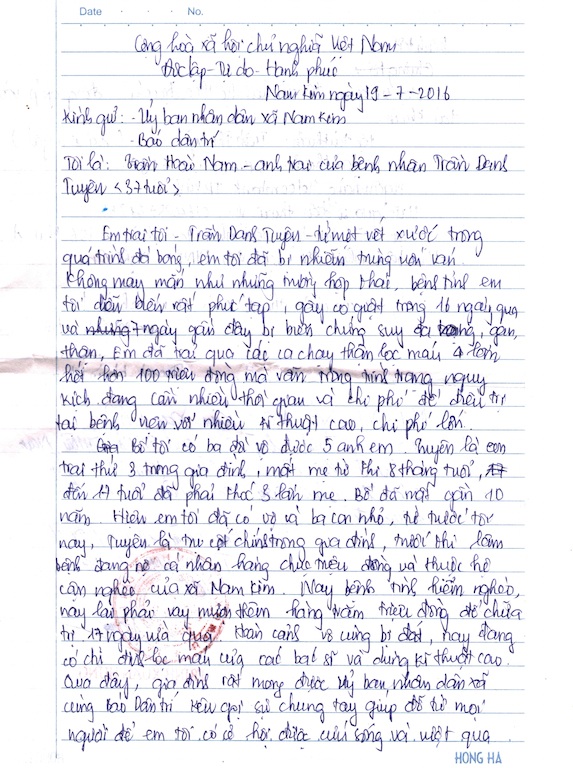 Date No.
Cộng hoà xã hội chủ nghĩa Việt Nam
Độc lập - Tự do - Hạnh phúc
Nam Kim ngày 19 - 7 - 2016
Kính gửi: - Uỷ ban nhân dân xã Nam Kim
- Báo dân trí
Tôi là: Trần Hoài Nam - anh trai của bệnh nhân Trần Danh
Tuyên <37 tuổi>
Em trai tôi - Trần Danh Tuyên - từ một vết xước trong
quá trình đá bóng, em tôi đã bị nhiễm trùng uốn ván.
Không may mắn như những trường hợp khác, bệnh tình em
tôi diễn biến rất phức tạp, gây co giật trong 16 ngày qua
và 7 ngày gần đây bị biến chứng suy đa tạng, gan,
thận, Em đã trải qua các ca chạy thận lọc máu 4 lần
hết hơn 100 triệu đồng mà vẫn trong tình trạng nguy
kịch đang cần nhiều thời gian và chi phí để điều trị
tại bệnh viện với nhiều kĩ thuật cao, chi phí lớn.
Bố tôi có ba đời vợ được 5 anh em. Tuyên là con
trai thứ 3 trong gia đình, mất mẹ từ khi 8 tháng tuổi,
đến 17 tuổi đã phải khóc 3 lần mẹ. Bố đã mất gần 10
năm. Hiện em tôi đã có vợ và ba con nhỏ, từ trước tới
nay, Tuyên là trụ cột chính trong gia đình, trước khi lâm
bệnh đang nợ cá nhân hàng chục triệu đồng và thuộc hộ
cận nghèo của xã Nam Kim. Nay bệnh tình hiểm nghèo,
nay lại phải vay mượn thêm hàng trăm triệu đồng để chữa
trị 17 ngày vừa qua. Hoàn cảnh vô cùng bi đát, nay đang
có chỉ định lọc máu của các bác sĩ và dùng kĩ thuật cao.
Qua đây, gia đình rất mong được Uỷ ban nhân dân xã
cùng Báo Dân trí kêu gọi sự chung tay giúp đỡ từ mọi
người để em tôi có cơ hội được cứu sống và vượt qua
HONG HA